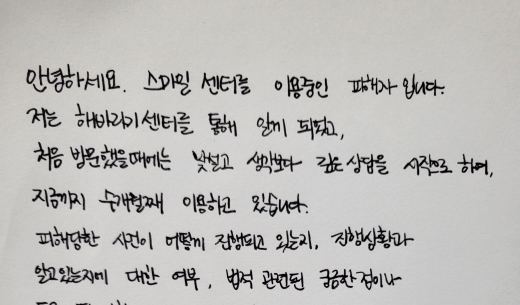 안녕하세요. 스마일 센터를 이용중인 피해자 입니다.
저는 해바라기센터를 통해 알게 되었고,
처음 방문했을때에는 낯설고 생각보다 깊은 상담을 시작으로 하여,
지금까지 수개월째 이용하고 있습니다.
피해당한 사건이 어떻게 진행되고 있는지, 진행상황과
알고있는지에 대한 여부, 법적 관련된 궁금한 점이나